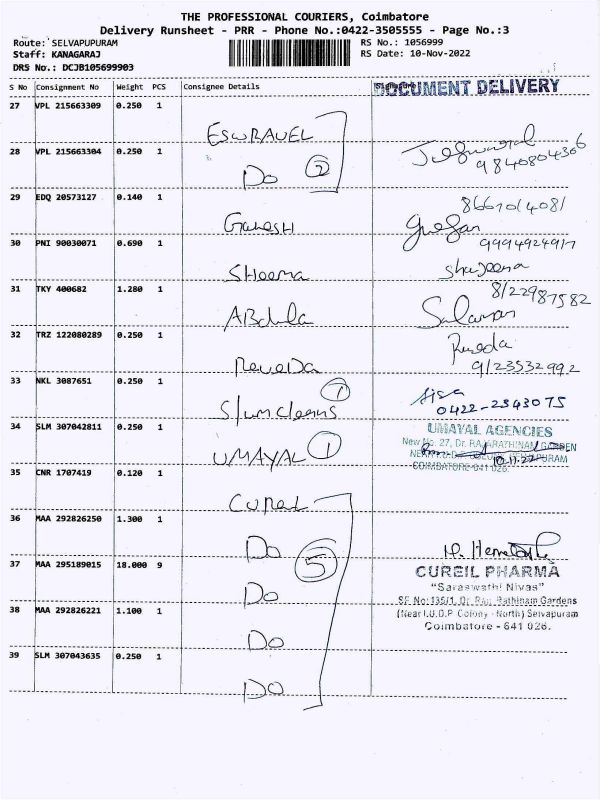 THE PROFESSIONAL COURIERS, Coimbatore
Delivery Runsheet - PRR - Phone No.:0422-3505555 - Page No.:3
Route: SELVAPUPURAM
RS No.: 1056999
Staff: KANAGARAJ
RS Date: 10-Nov-2022
DRS No.: DCJB105699903
S No Consignment No Weight PCS Consignee Details Signature
DOCUMENT DELIVERY
27 VPL 215663309 0.250 1
ESWRAVEL
28 VPL 215663304 0.250 1
9840804306
Do 2
29 EDQ 20573127 0.140 1
8667014081
Ganesh
30 PNI 90030071 0.690 1
9994924917
Sheema
31 TKY 400682 1.280 1
8122987582
Abdula
32 TRZ 122080289 0.250 1
9123532992
33 NKL 3087651 0.250 1
1
0422-2343075
34 SLM 307042811 0.250 1
UMAYAL 1
UMAYAL AGENCIES
New No. 27, Dr. RAJARATHINAM GARDEN
10.11.22
COIMBATORE-641 026.
35 CNR 1707419 0.120 1
36 MAA 292826250 1.300 1
Do 5
37 MAA 295189015 18.000 9
Do
CUREIL PHARMA
"Saraswathi Nivas"
SF No:135/1, Dr. Raja Rathinam Gardens
(Near I.U.D.P Colony - North) Selvapuram
Coimbatore - 641 026.
38 MAA 292826221 1.100 1
Do
39 SLM 307043635 0.250 1
Do